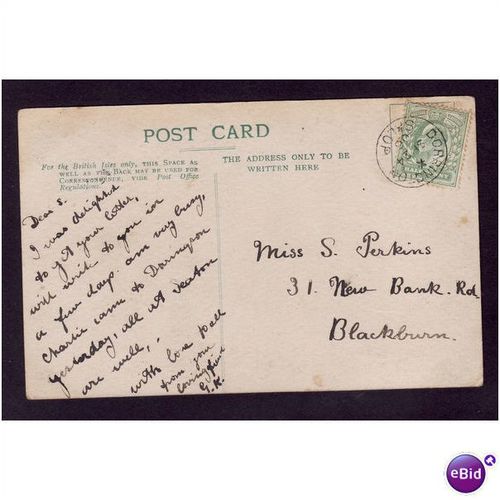 POST CARD
For the British Isles only, THIS SPACE AS
WELL AS THE BACK MAY BE USED FOR
CORRESPONDENCE, VIDE Post Office
Regulations.
THE ADDRESS ONLY TO BE
WRITTEN HERE
Dear S.
I was delighted
to get your letter,
will write to you in
a few days. am very busy,
Charlie came to
yesterday, all at Seaton
are well,
with love to all
from your
loving friend
G.K.
Miss S. Perkins
31. New Bank. Rd.
Blackburn.
SALOP
eBid